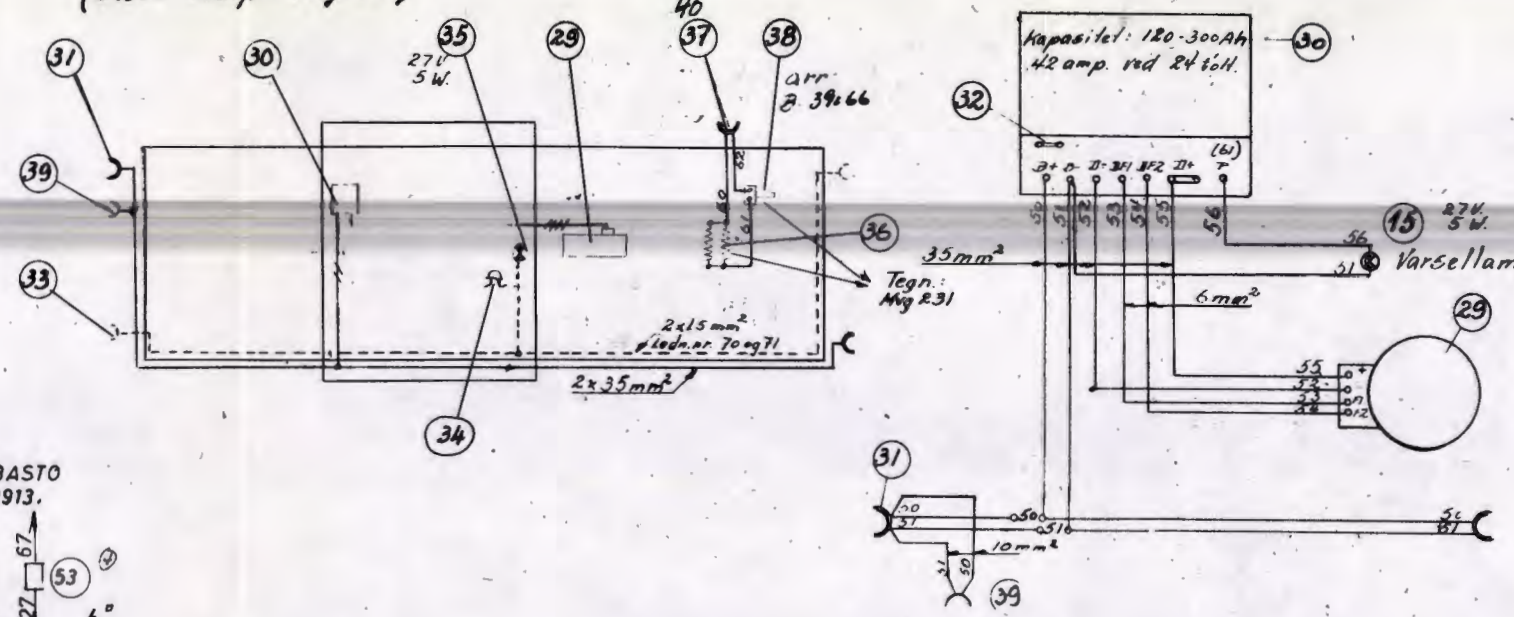 40
31
39
33
30
35
27V.
5 W.
29
37
38
arr.
62
60
61
36
Tegn.:
Mvg 231
2x1.5 mm²
Ledn.nr. 70 og 71
2x35mm²
34
Kapasitet: 120-300Ah
42 amp. ved 24 volt.
30
32
(61)
B+ D- DF1 DF2 D+
50
51
52
53
54
55
56
35mm²
6mm²
15
27V.
5 W.
56
51
Varsellam
29
55
52
53
54
31
50
51
50
51
10mm²
51
50
39
BASTO
913.
67
53
27